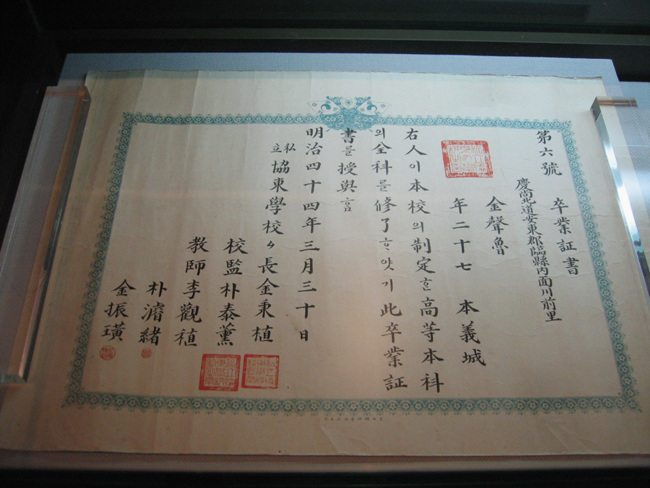 第六號 卒業証書
慶尚北道安東郡臨縣內面川前里
金聲魯
年二十七 本義城
右人이本校의制定한高等本科
의全科를修了하얏기此卒業証
書를授與홈
明治四十四年三月三十日
私立協東學校々長金秉植
校監朴泰薰
教師李觀稙
朴濟緖
金振璜